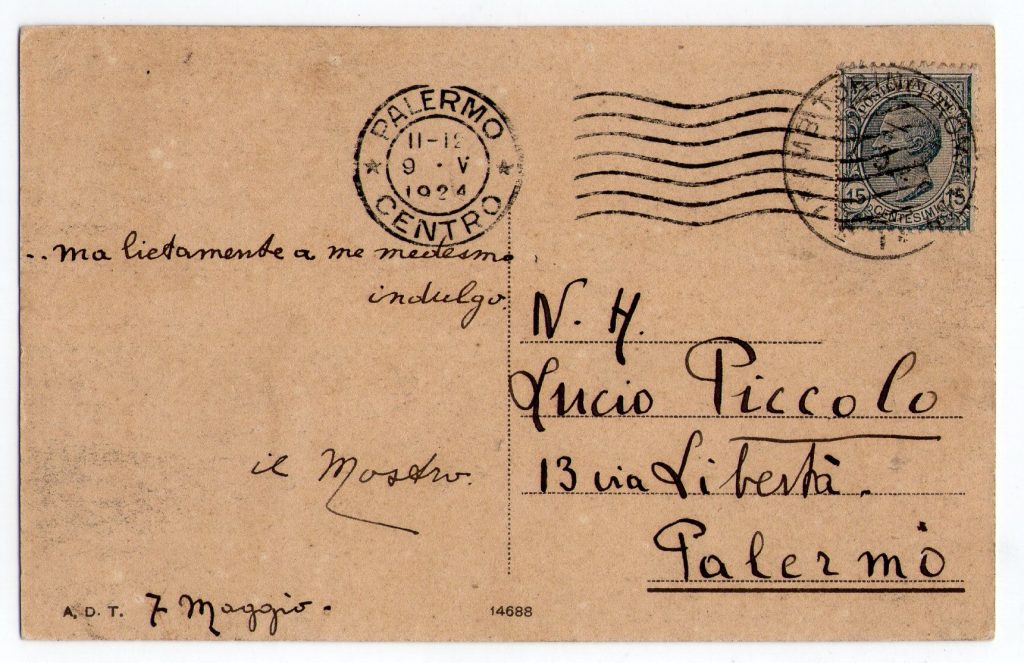 PALERMO
11-12
9 · V
1924
CENTRO
POSTE ITALIANE
15 15
CENTESIMI
.. ma lietamente a me medesmo
indulgo.
N. H.
Lucio Piccolo
13 via Libertà.
Palermo
il Mostro.
7 Maggio.
A. D. T.
14688